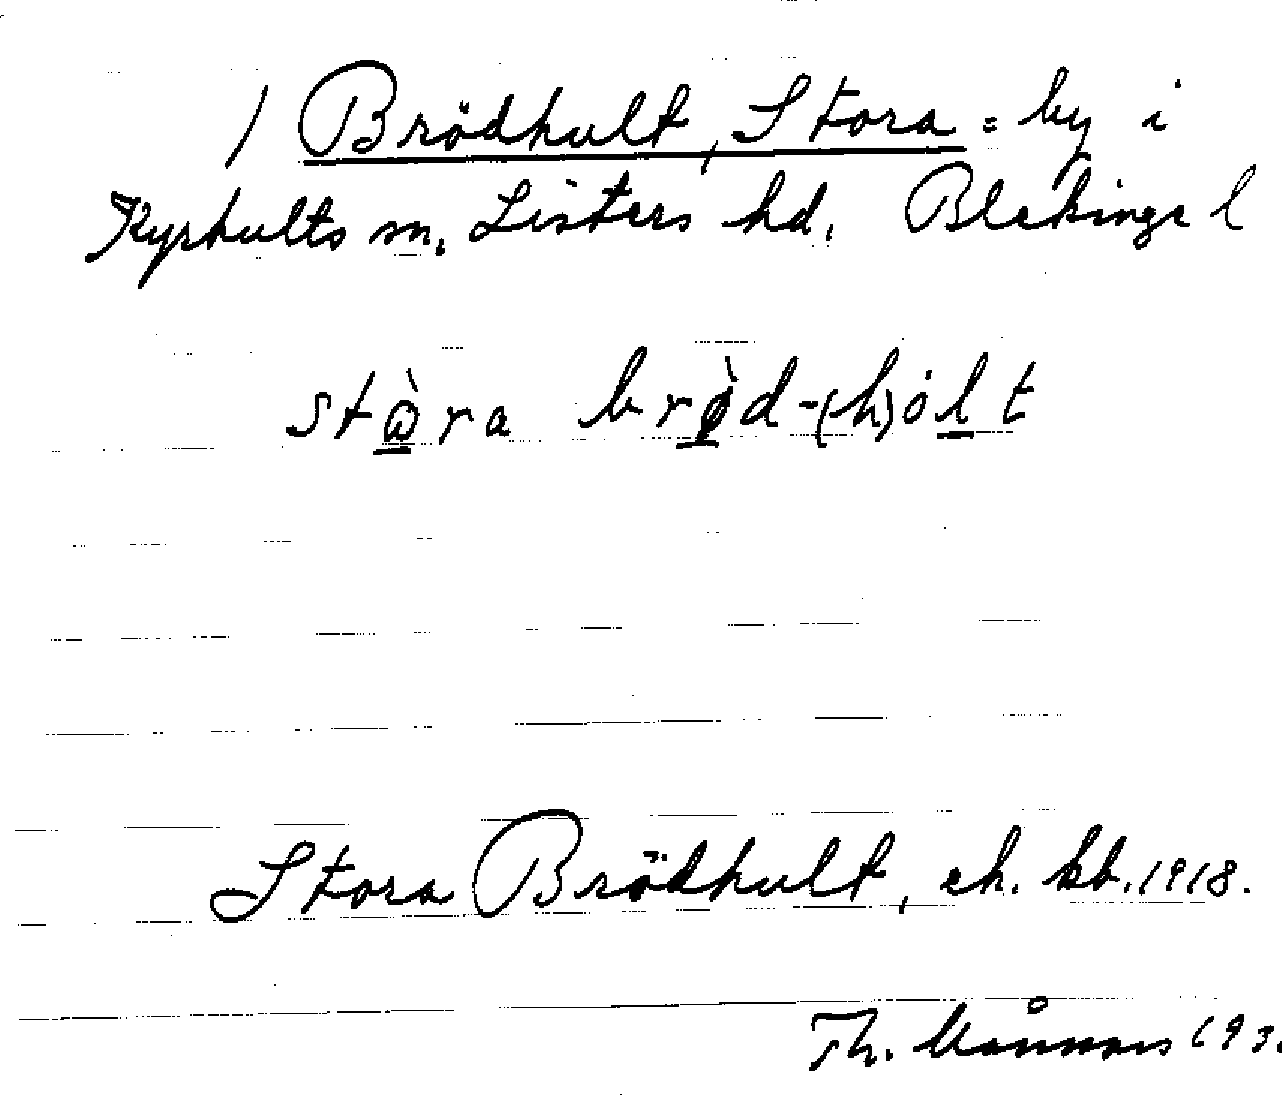 / Brödhult, Stora = by i
Kyrkults sn. Listers hd. Blekinge l
stɷ̀ra brø̀d-(h)ólt
Stora Brödhult, eh. kb. 1918.
Th. 193